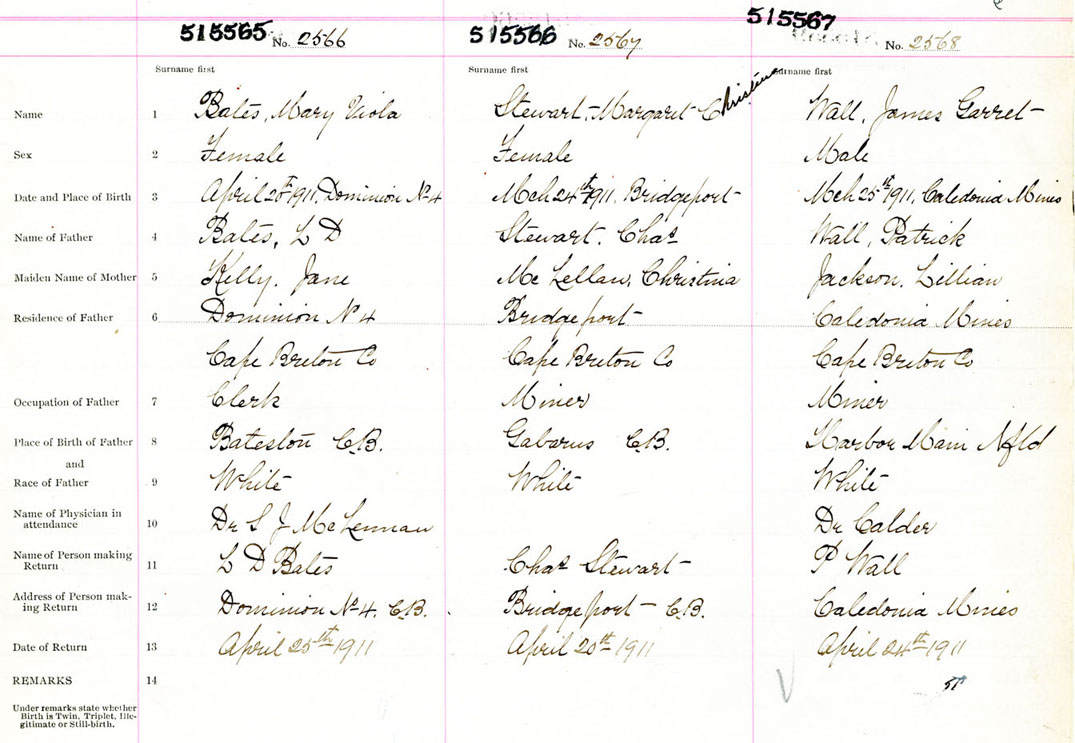 515565 No. 2566 515566 No. 2567 515567 No. 2568
Surname first Surname first Surname first
Name 1 Bates, Mary Viola Stewart, Margaret Christina Wall, James Garret
Sex 2 Female Female Male
Date and Place of Birth 3 April 20th 1911, Dominion No 4 Mch 24th 1911, Bridgeport Mch 25th 1911, Caledonia Mines
Name of Father 4 Bates, L D Stewart, Chas Wall, Patrick
Maiden Name of Mother 5 Kelly, Jane Mc Lellan, Christina Jackson, Lillian
Residence of Father 6 Dominion No 4 Bridgeport Caledonia Mines
Cape Breton Co Cape Breton Co Cape Breton Co
Occupation of Father 7 Clerk Miner Miner
Place of Birth of Father 8 Bateston C.B. Gabarus C.B. Harbor Main Nfld
and
Race of Father 9 White White White
Name of Physician in
attendance 10 Dr S J McLennan Dr Calder
Name of Person making
Return 11 L D Bates Chas Stewart P Wall
Address of Person mak-
ing Return 12 Dominion No 4. C.B. Bridgeport C.B. Caledonia Mines
Date of Return 13 April 25th 1911 April 20th 1911 April 24th 1911
REMARKS 14
Under remarks state whether
Birth is Twin, Triplet, Ille-
gitimate or Still-birth.